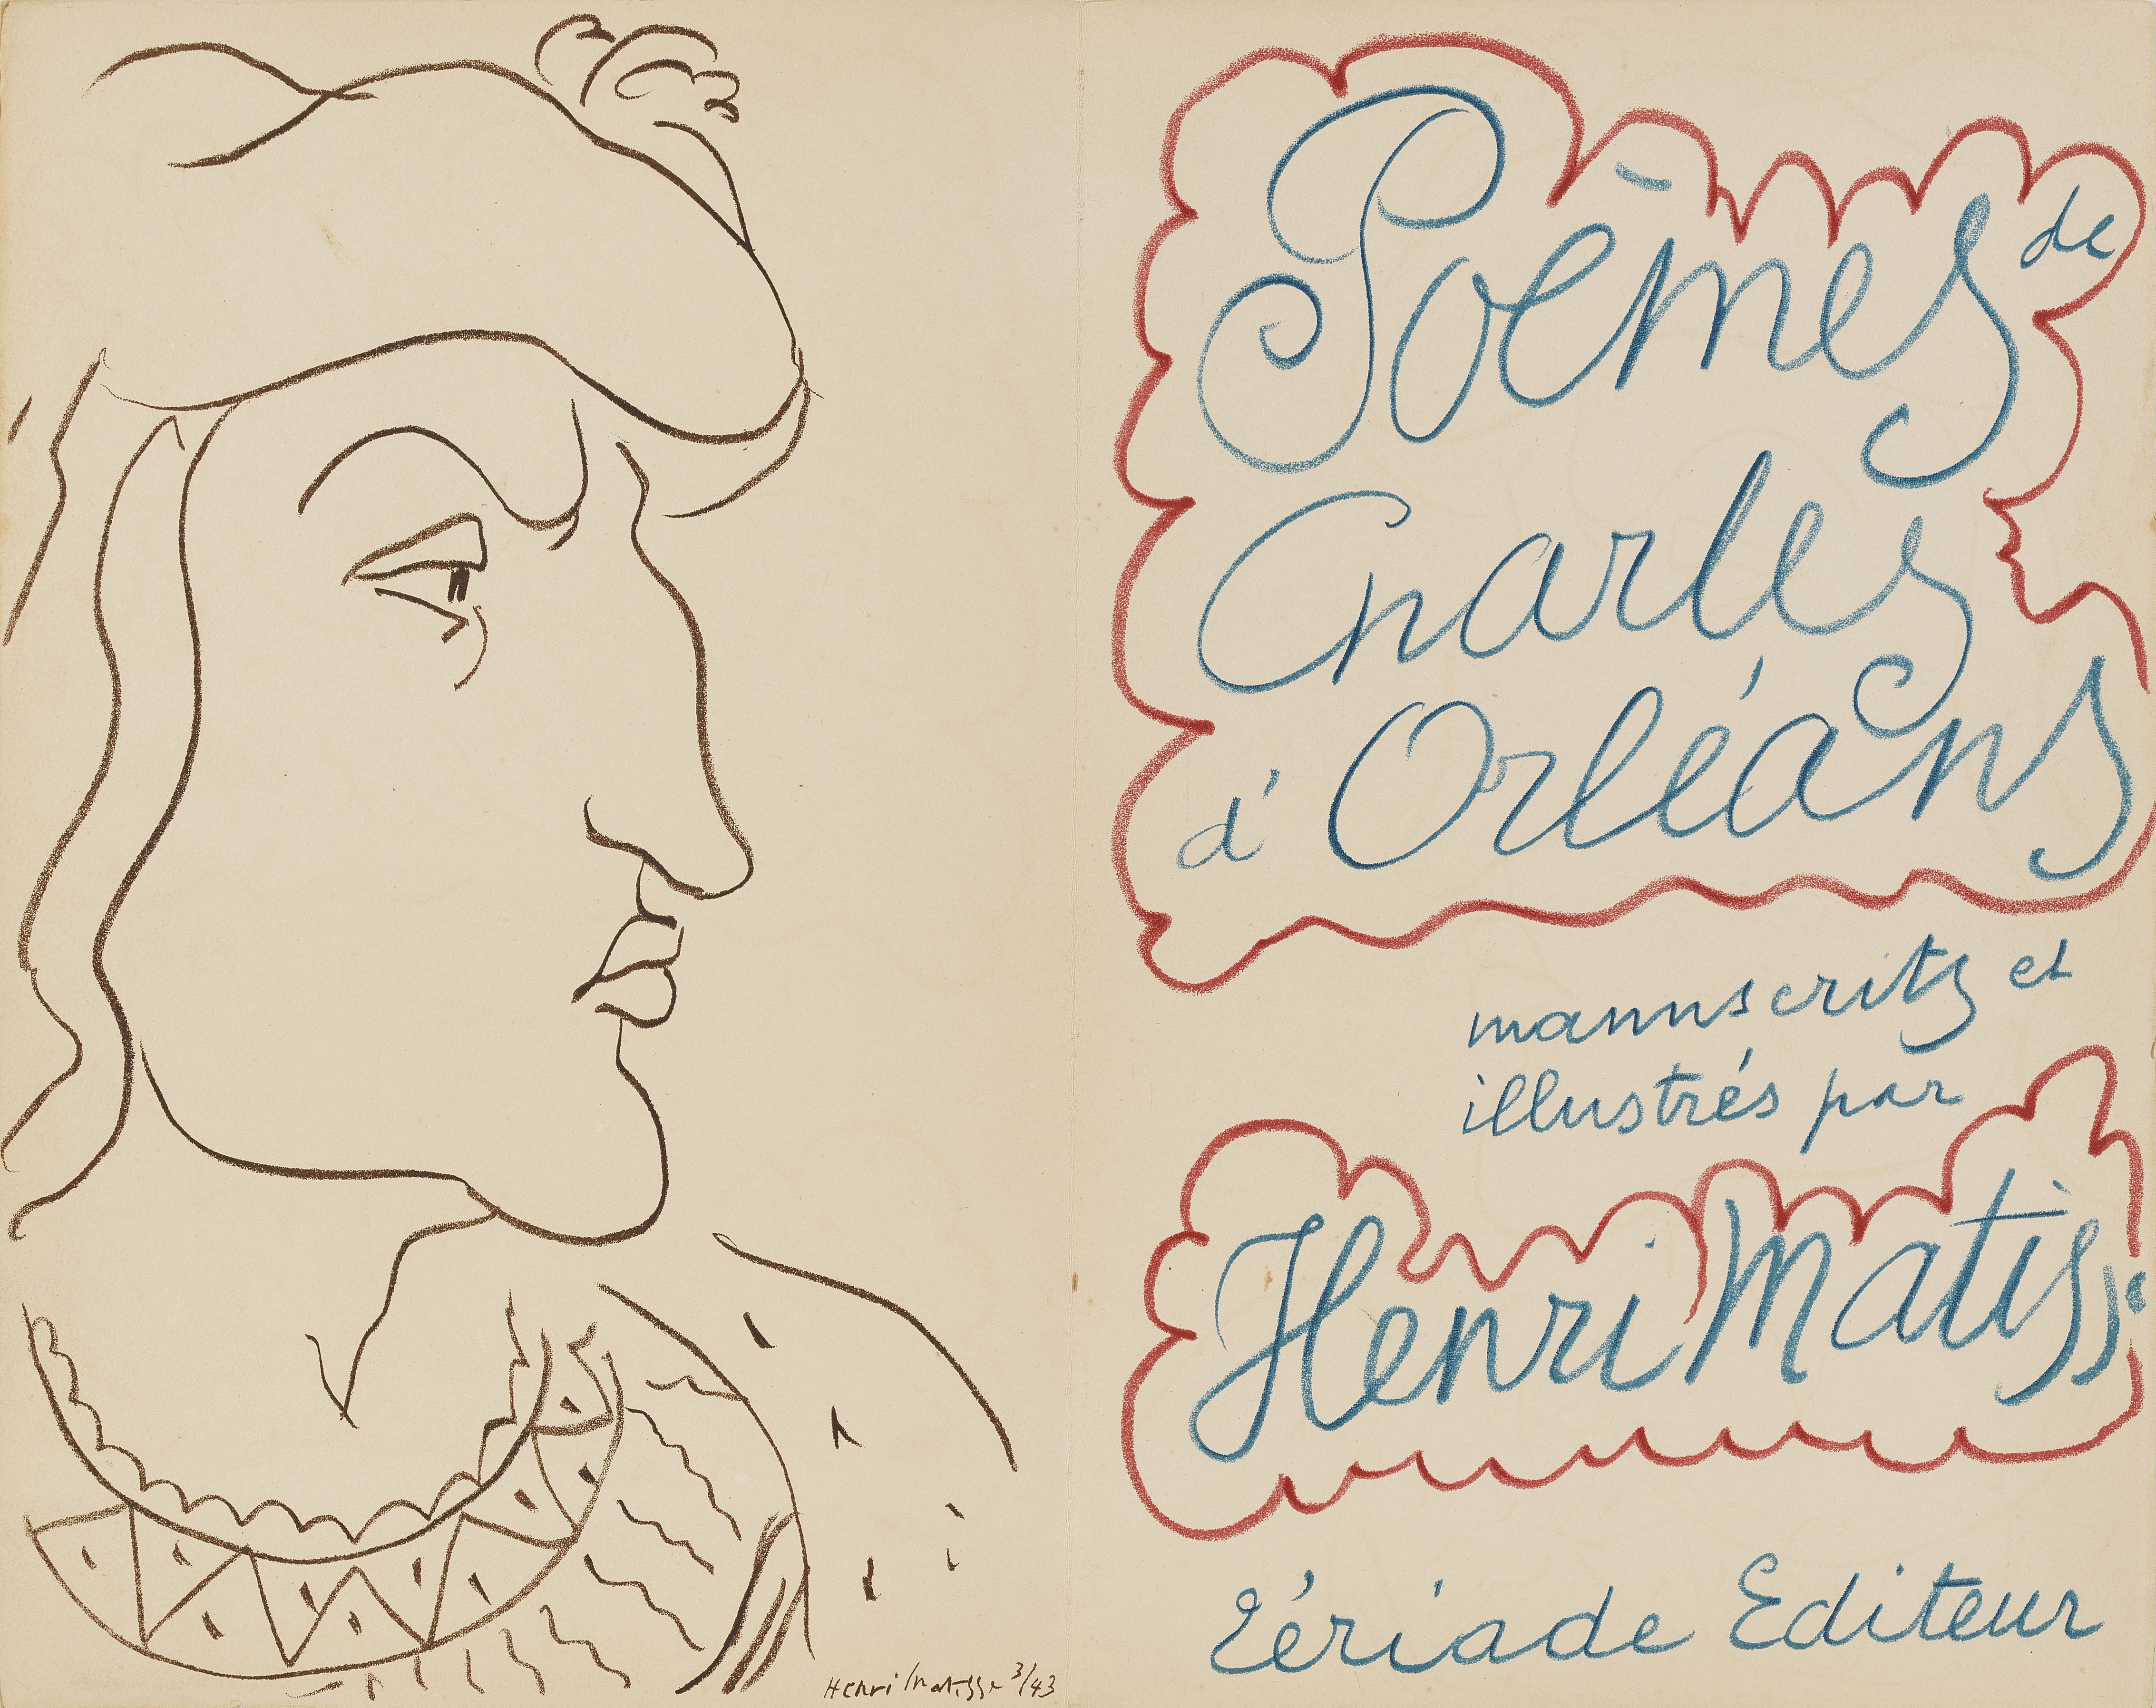 Henri Matisse 3/43
Poèmes de
Charles
d'Orléans
manuscrits et
illustrés par
Henri Matisse
Tériade Editeur